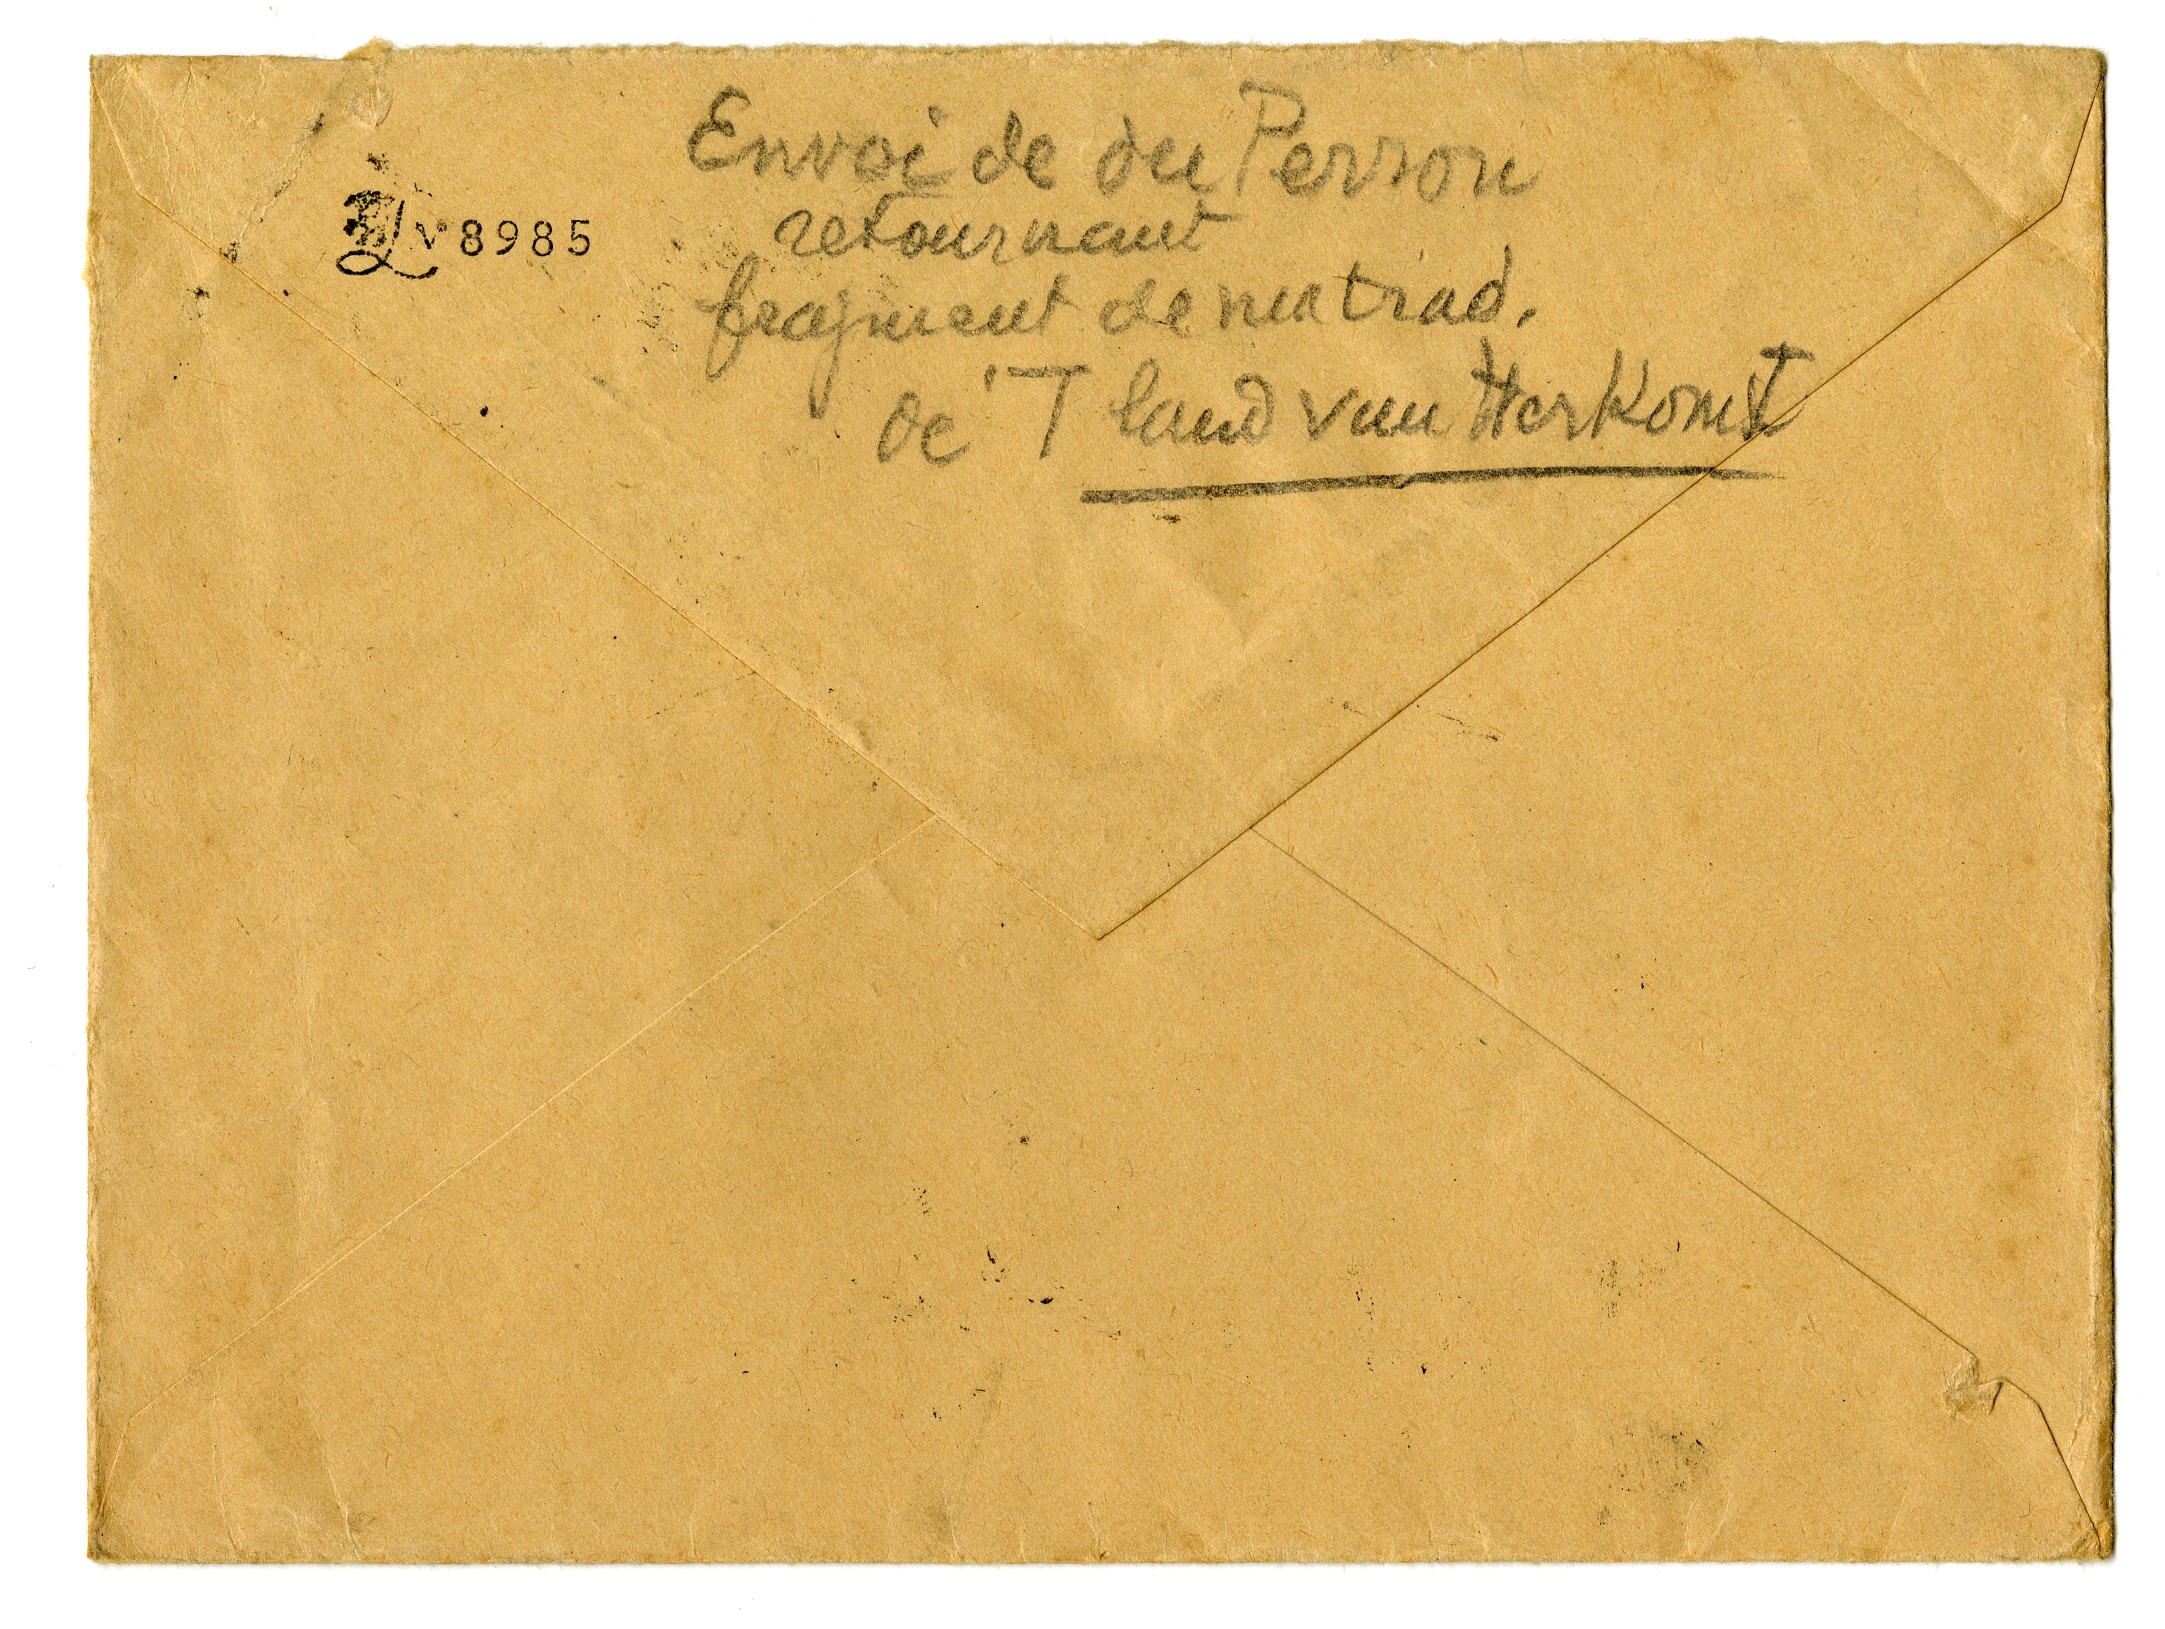 v 8985
Envoi de du Perron
retournant
fragment de ma trad.
de 'T land van Herkomst